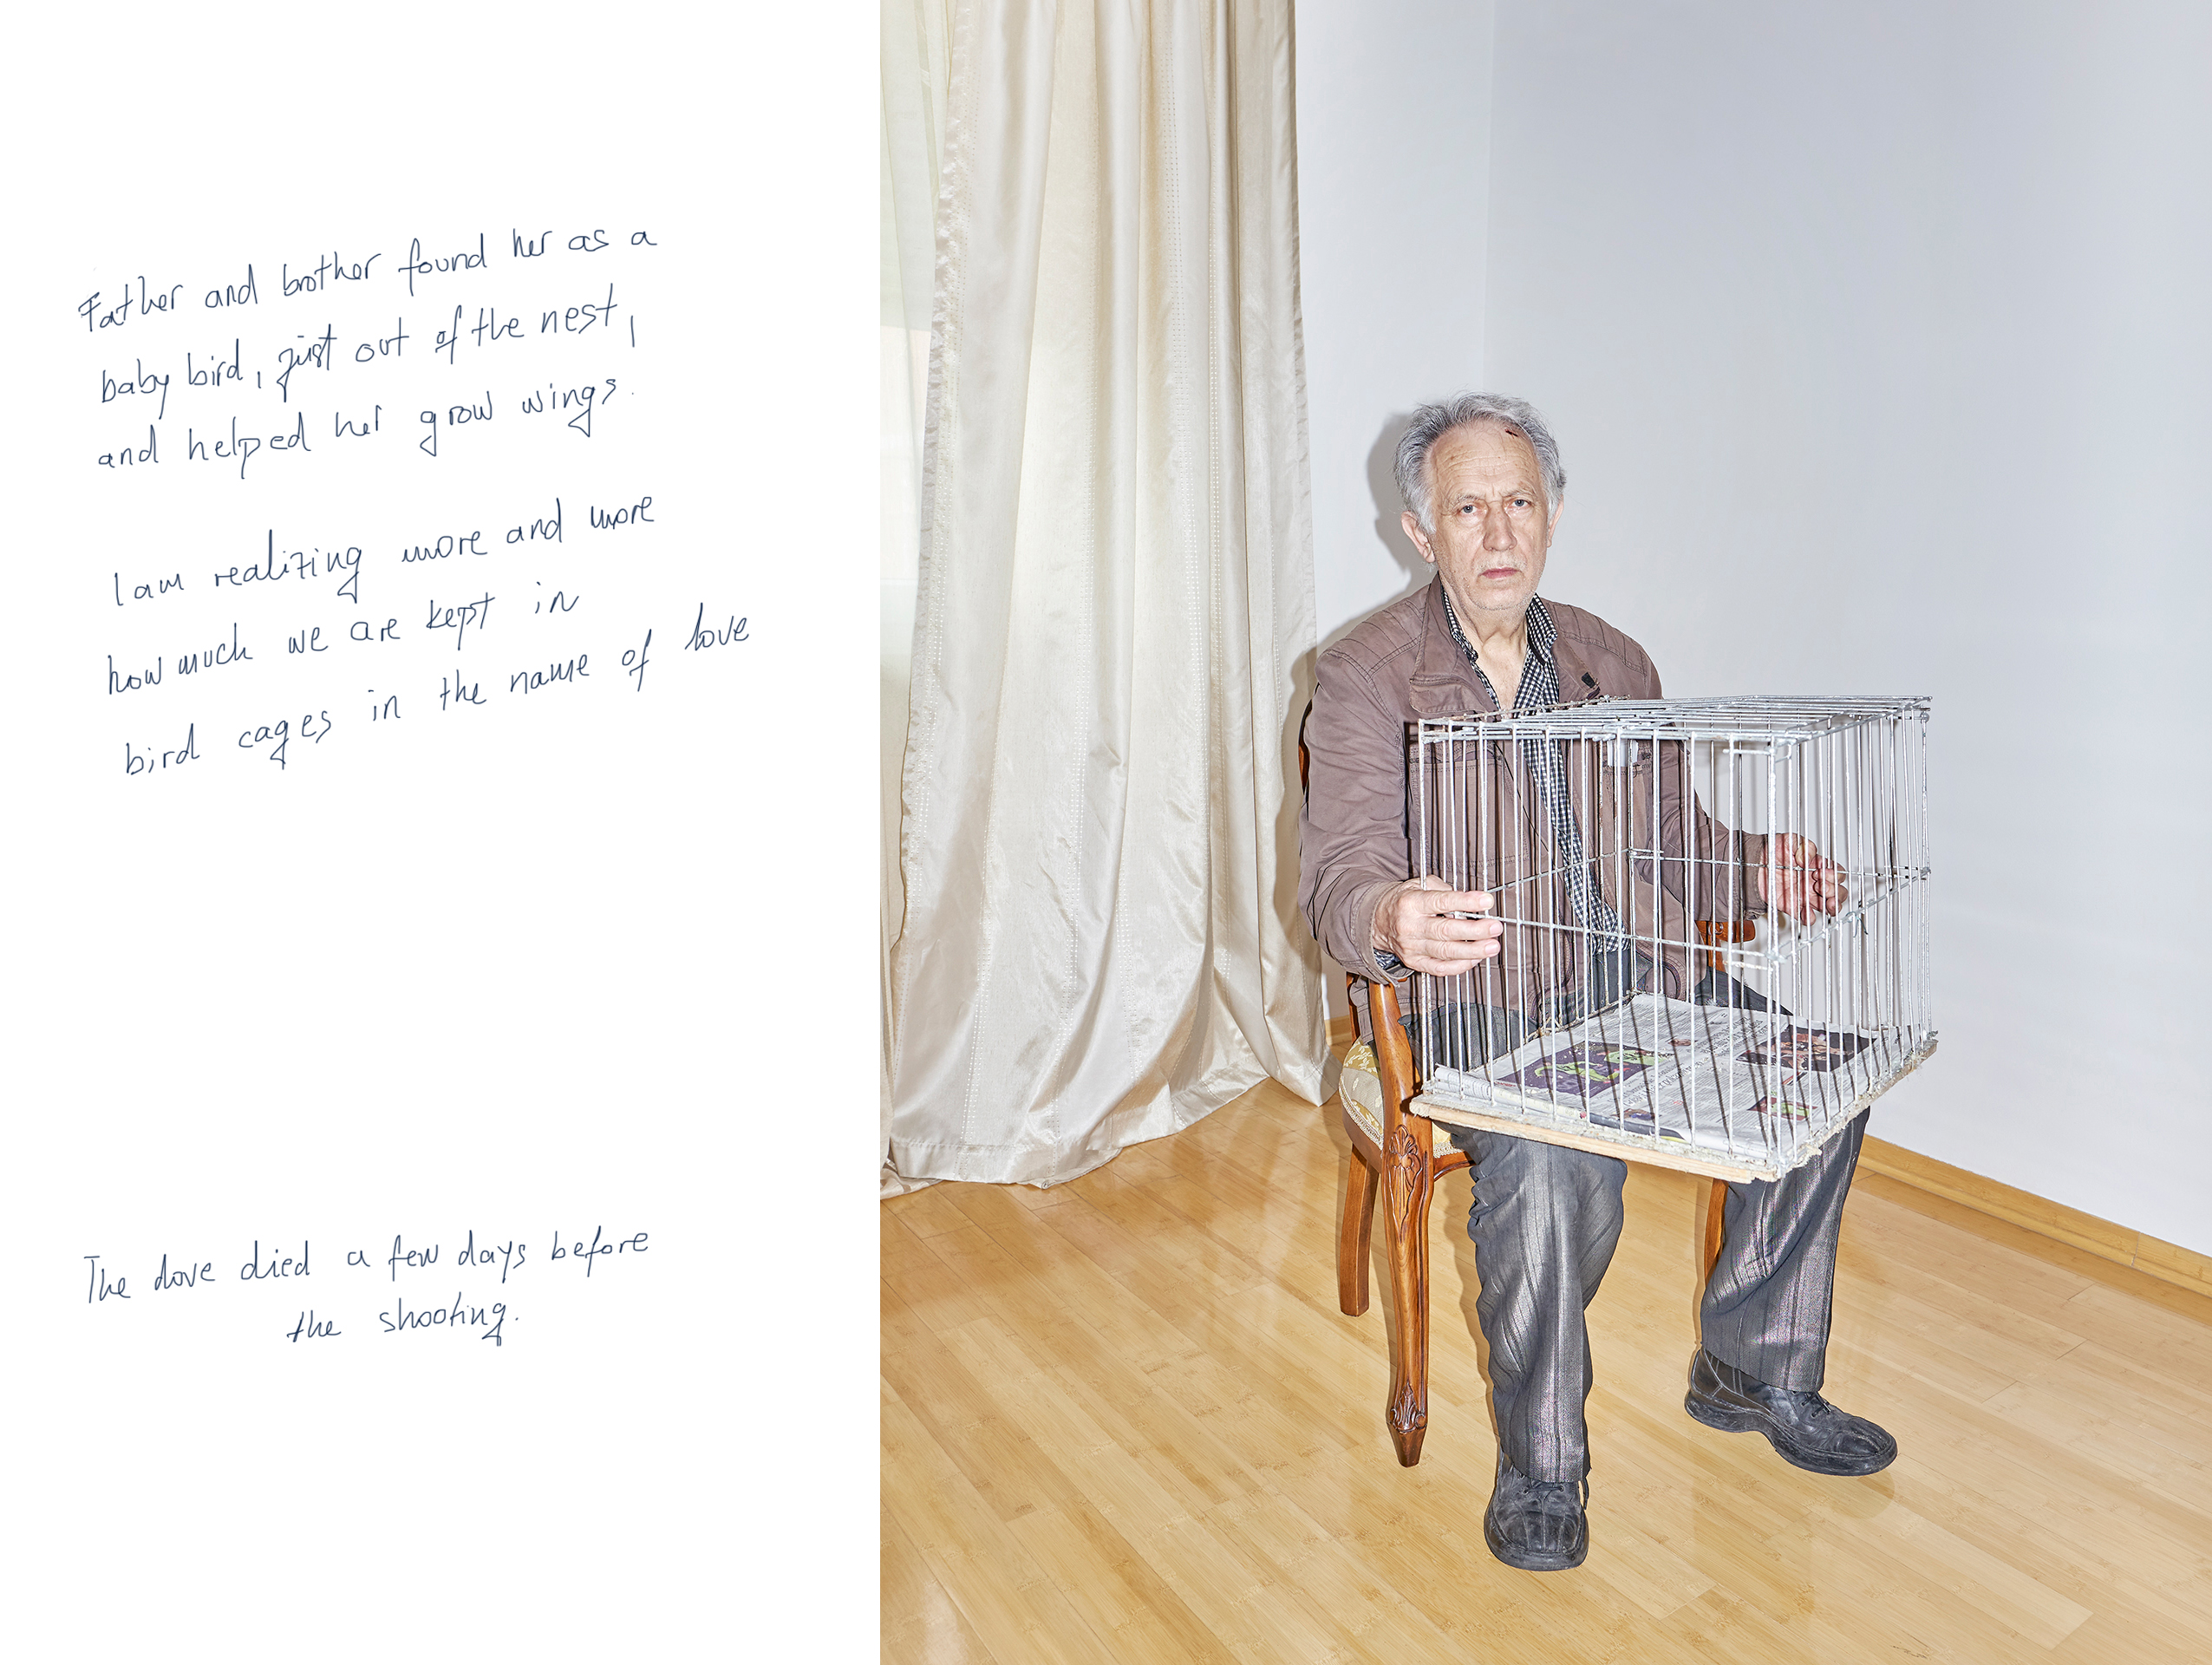 Father and brother found her as a
baby bird, just out of the nest,
and helped her grow wings.
I am realizing more and more
how much we are kept in
bird cages in the name of love
The dove died a few days before
the shooting.